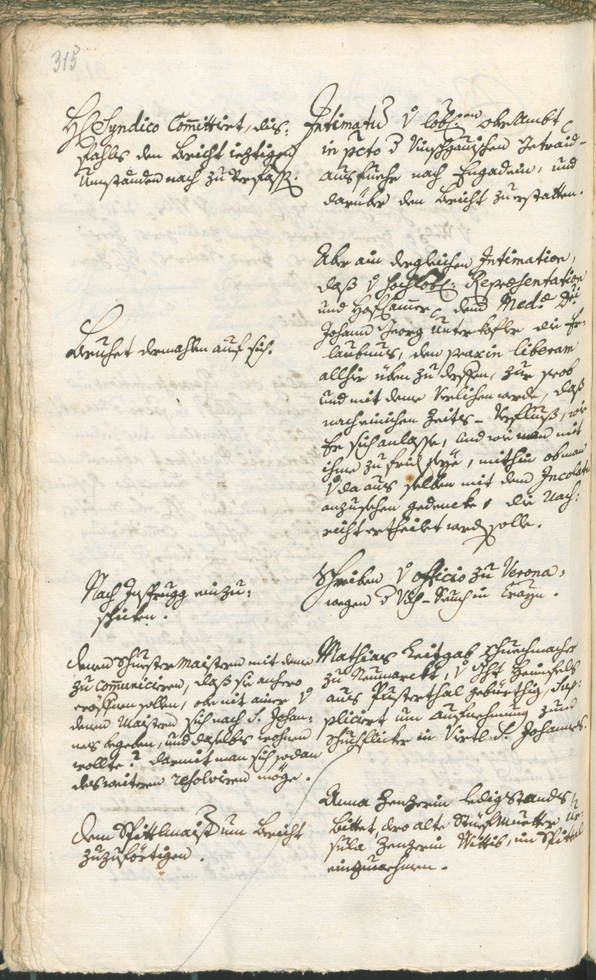 315
H: Syndico Committirt, diß-
fahls den Bericht iehtigen
Umständen nach zu verfassen.
Intimatum v. löbl. obr Ambt
in pcto d. Vinschgauischen Getraid-
ausfuehr nach Engadein, und
darüber den Bericht zuerstatten.
Beruhet dermahlen auf sich.
Aber ain dergleichen Intimation,
daß v. hochlöbl: Repræsentation
und Hofcammer dem Med:
Johann Georg Unterkofler die Er-
laubnus, den praxin liberam
allhir üben zu derffen, zur prob
und mit deme verlichen werde, daß
nach einichen Zeits-Verfluß, wie
Er sich anlasse, und wie man mit
ihme zu friden seye, mithin ob man
v. da aus selben mit dem Incolat
anzusehen gedencke, die Nach-
richt ertheilet werden solle.
Nach Insprugg einzu-
schicken.
Schreiben v. officio zu Verona,
wegen d. Vich-Seuch in Crayn.
Denen Schuester Maistern mit deme
zu communiciren, daß sie anhero
eröffnen sollen, ob nit ainer v.
denen Maistern sich nach S. Johan-
nes begeben, und daselbs wohnen
wollte? darmit man sich sodan
des weitern resolviren möge.
Mathias Leitgab Schuechmacher
zu Neumarckt, v. Ght Heimfels
aus Pusterthal gebürthig, Sup-
pliciert um Aufnehmung zum
Schuchflicker in Viertl S. Johannes.
Dem Spittlmaister um Bericht
zuzufertigen.
Anna Zenzerin ledig Stands
bittet, dero alte Stüefmuetter Ur-
sula Zenzerin Wittib, im Spittal
einzunehmen.